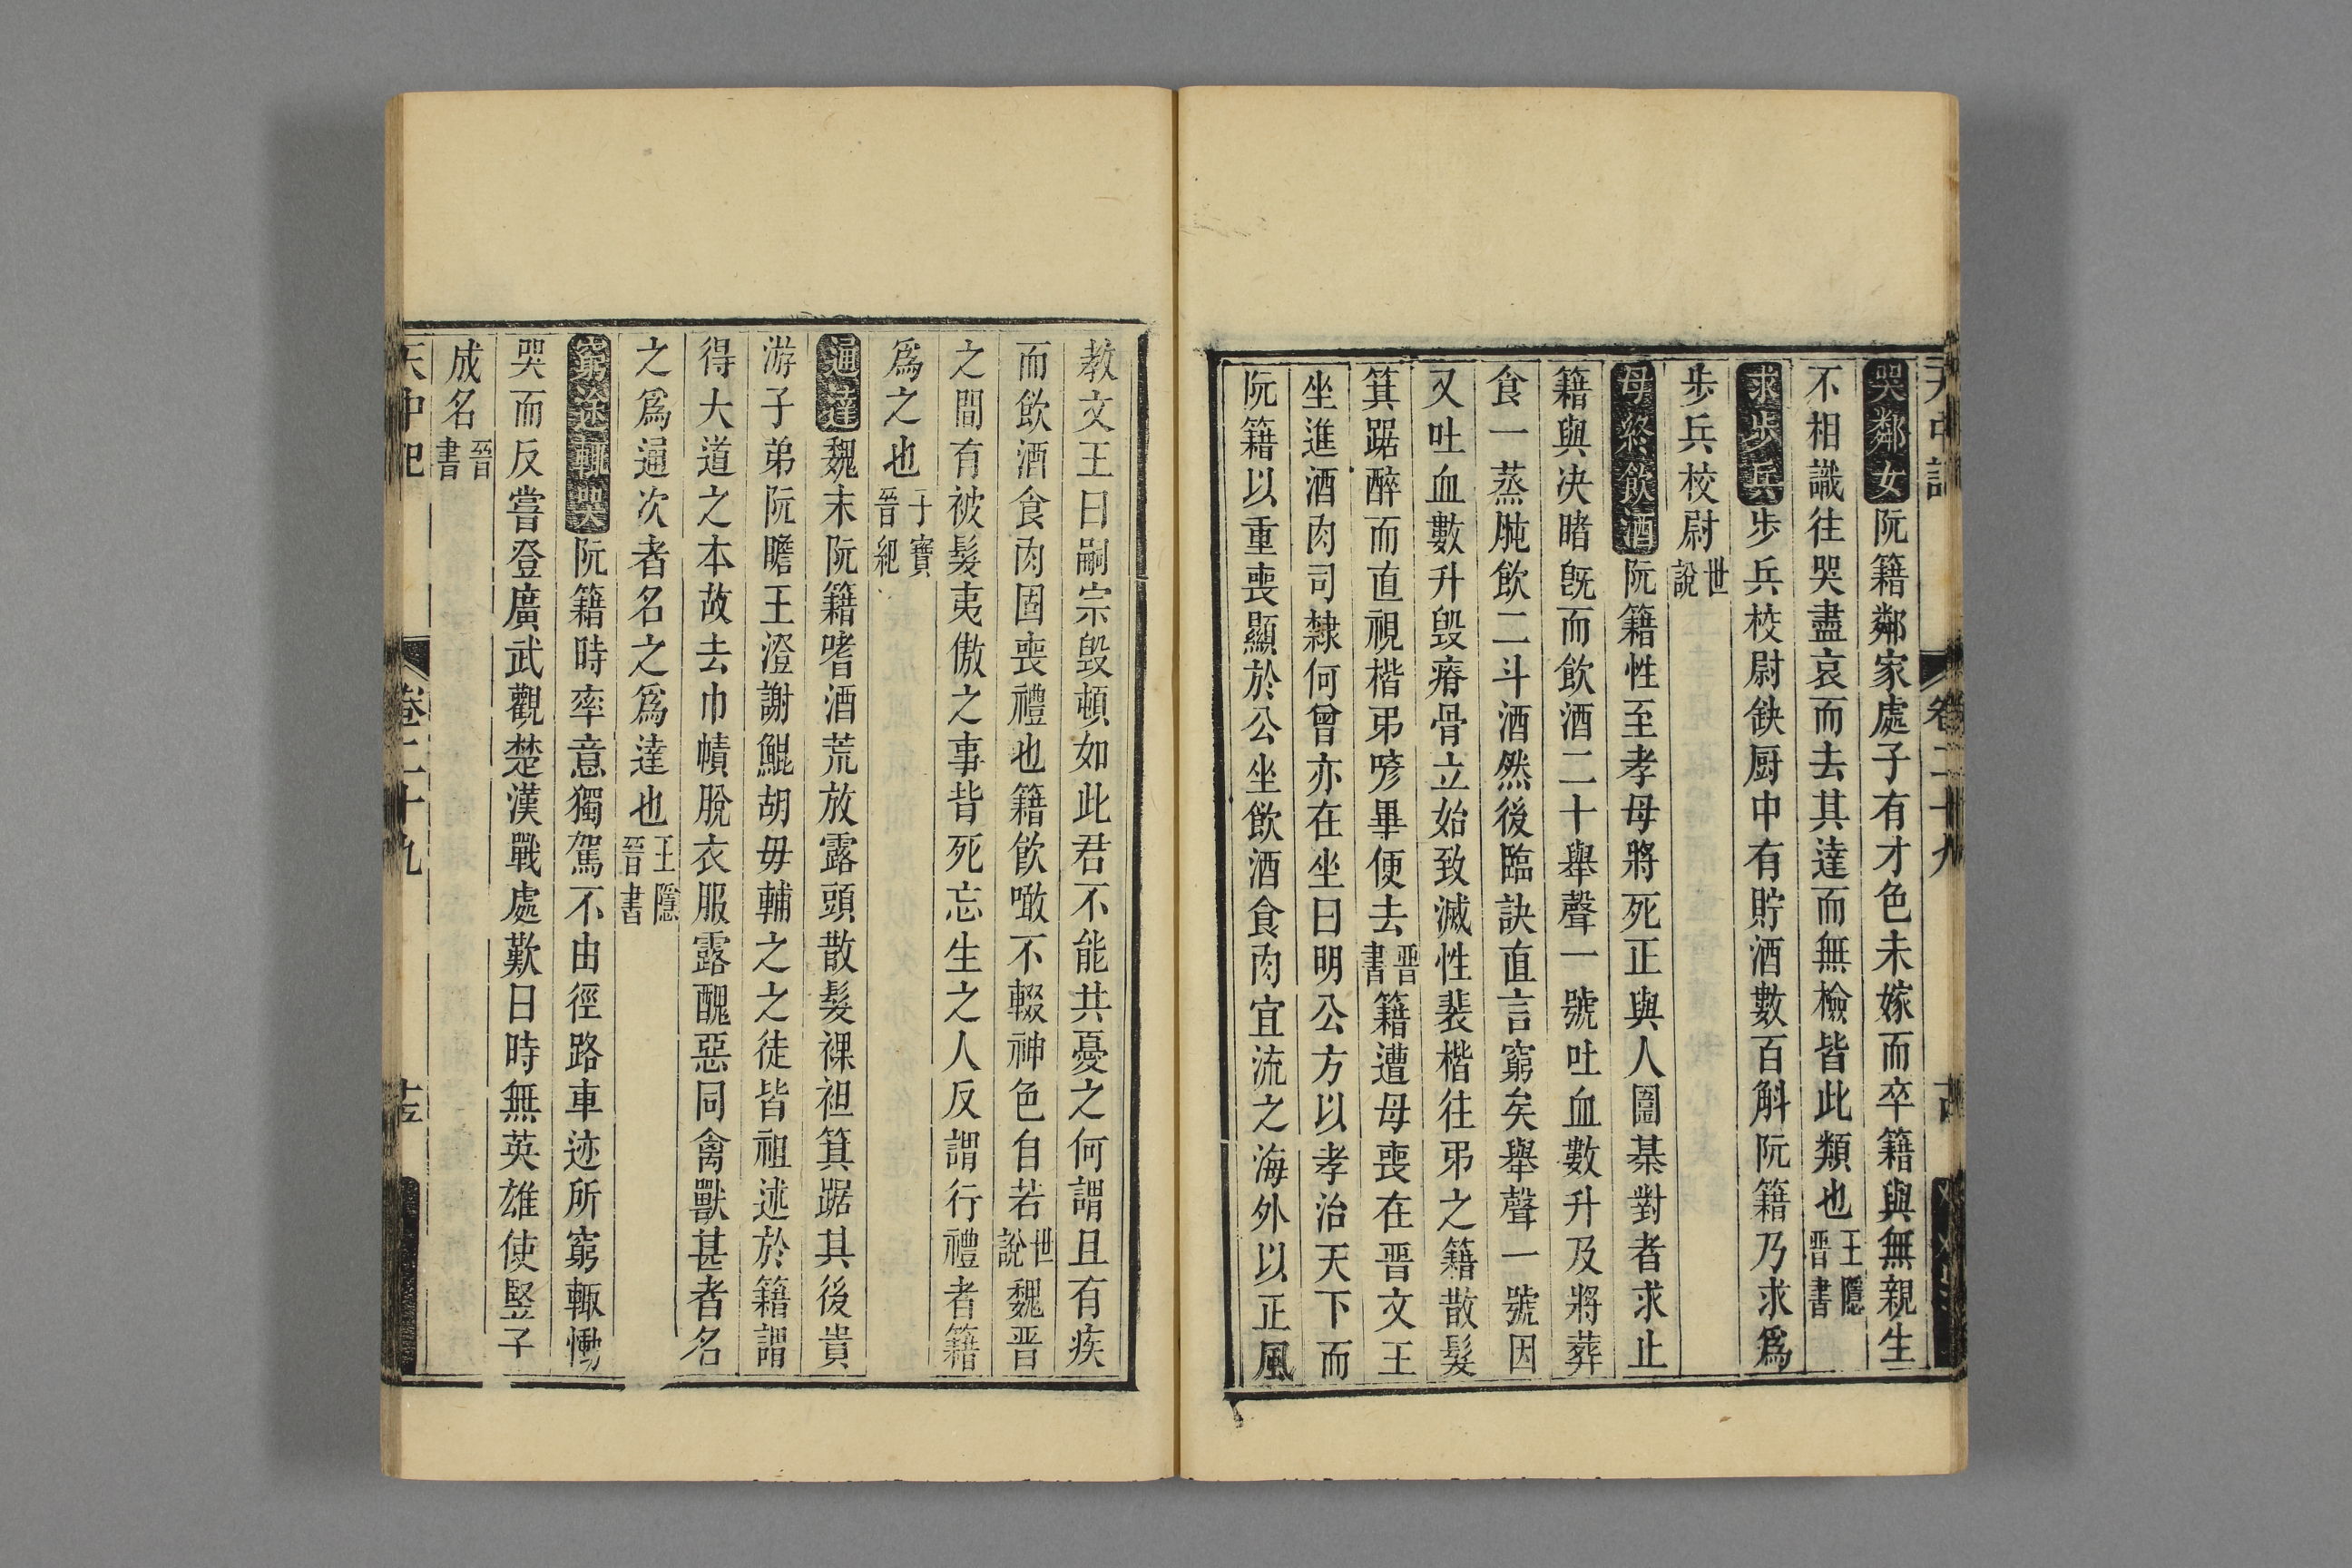 天中記 卷二十九
哭鄰女阮籍鄰家處子有才色未嫁而卒籍與無親生
不相識往哭盡哀而去其達而無檢皆此類也王隱晋書
求步兵步兵校尉缺厨中有貯酒數百斛阮籍乃求爲
步兵校尉世說
母終飲酒阮籍性至孝母將死正與人圍棊對者求止
籍與决賭旣而飲酒二十舉聲一號吐血數升及將葬
食一蒸肫飲二斗酒然後臨訣直言窮矣舉聲一號因
又吐血數升毀瘠骨立始致滅性裴楷往弔之籍散髮
箕踞醉而直視楷弔唁畢便去晋書籍遭母喪在晋文王
坐進酒肉司隸何曾亦在坐曰明公方以孝治天下而
阮籍以重喪顯於公坐飲酒食肉宜流之海外以正風
教文王曰嗣宗毀頓如此君不能共憂之何謂且有疾
而飲酒食肉固喪禮也籍飲噉不輟神色自若世說魏晋
之間有被髮夷傲之事背死忘生之人反謂行禮者籍
爲之也干寶晉紀
通達魏末阮籍嗜酒荒放露頭散髮裸袒箕踞其後貴
游子弟阮瞻王澄謝鯤胡毋輔之之徒皆祖述於籍謂
得大道之本故去巾幘脫衣服露醜惡同禽獸甚者名
之爲通次者名之爲達也王隱晉書
窮途輒哭阮籍時率意獨駕不由徑路車迹所窮輒慟
哭而反嘗登廣武觀楚漢戰處歎曰時無英雄使竪子
成名晉書
天中記 卷二十九